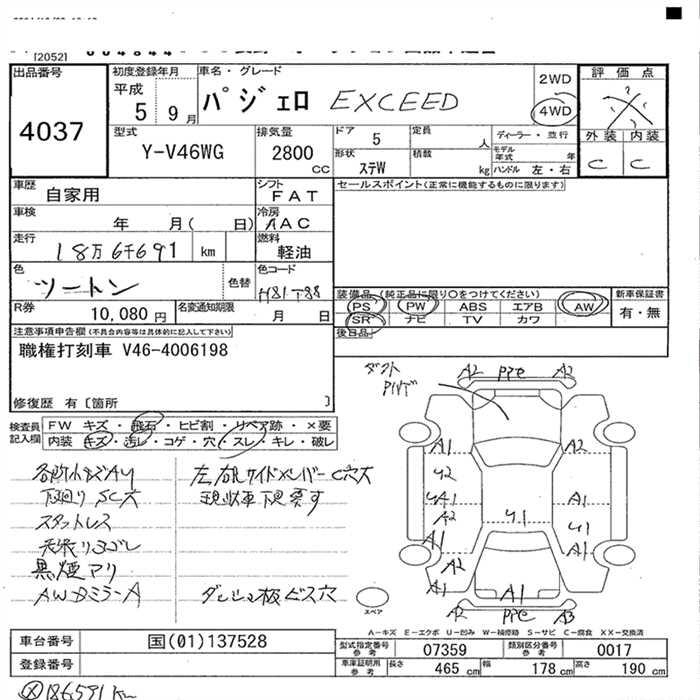 [2052]
出品番号
4037
初度登録年月
平成
5 9月
車名・グレード
パジェロ EXCEED
2WD
4WD
評価点
外装 内装
C C
型式
Y-V46WG
排気量
2800
CC
ドア
5
定員
人
形状
ステW
積数
kg
ディーラー・並行
モデル年式 年
ハンドル 左・右
車歴
自家用
シフト
FAT
車検
年 月( 日)
冷房
AAC
走行
18万6千691 km
燃料
軽油
色
ツートン
色替
色コード
H81 T88
R券
10,080 円
名変通知期限
月 日
セールスポイント(正常に機能するものに限ります)
装備品 (純正品に限り○をつけてください)
PS PW ABS エアB AW
SR ナビ TV カワ
新車保証書
有・無
後日品
注意事項申告欄(不具合内容等は具体的に記入して下さい)
職権打刻車 V46-4006198
修復歴 有〔箇所 〕
検査員記入欄
FW キズ・飛石・ヒビ割・リペア跡・×要
内装 キズ・汚レ・コゲ・穴・スレ・キレ・破レ
各所小キズAU
下廻りSC大
スタットレス
天張りヨゴレ
黒煙アリ
AWDミラーA
左右サイドメンバーC穴大
現状車下見要す
ダッシュ板ビス穴
ダクト
A2 PPE A2
A1 A2
U2
A2
A1
A1
U1
A1
U1
A1
A2
A1
A1
PPE A3
スペア
A-キズ E-エクボ U-凹み W-補修跡 S-サビ C-腐食 XX-交換済
車台番号
国(01)137528
登録番号
型式指定番号
参考
07359
類別区分番号
参考
0017
車庫証明用
参考
長さ 465 cm
幅 178 cm
高さ 190 cm
186591 km